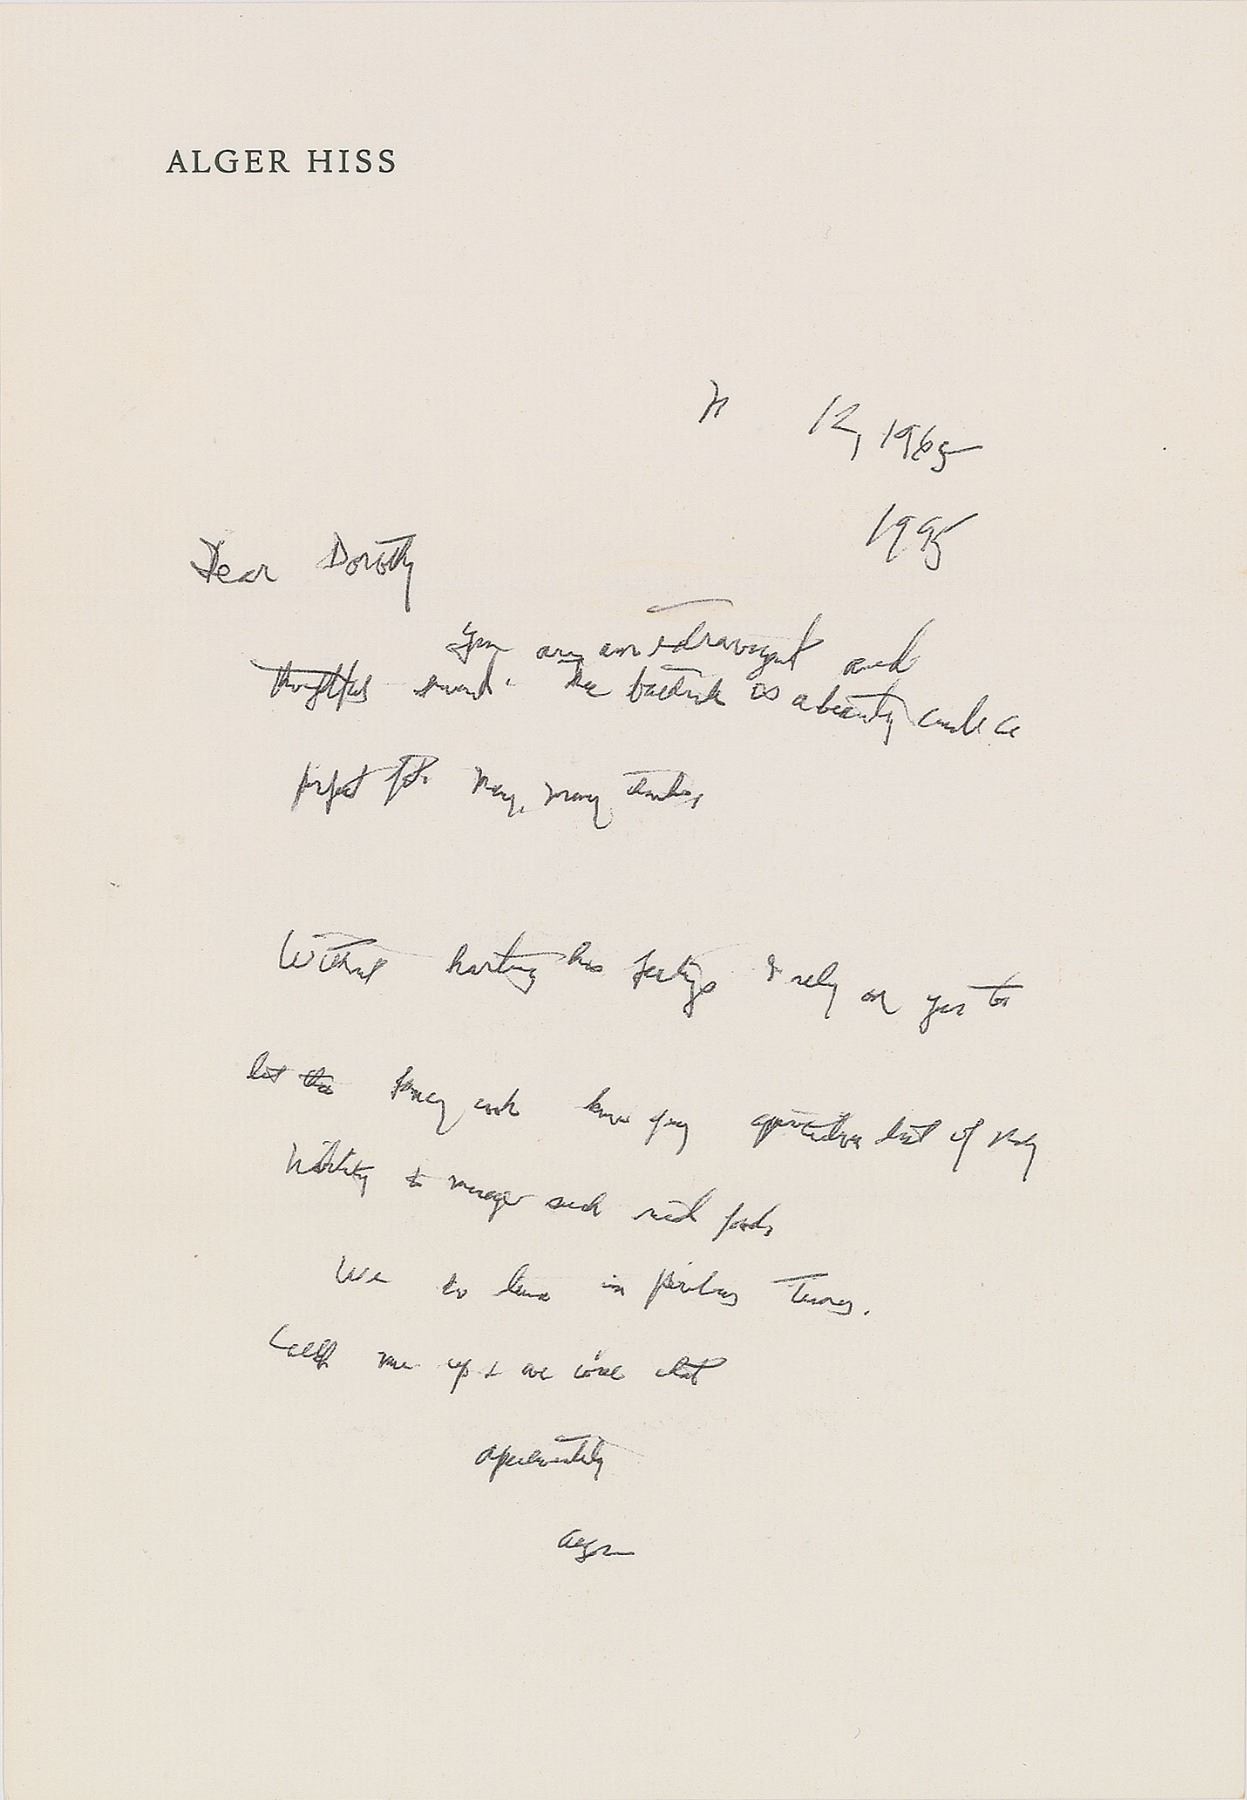 ALGER HISS
N 12, 1965
1995
Dear Dorothy
You are an extravagant and
thoughtful friend. The is a beauty and a
perfect fit. Many, many thanks,
Without hurting his feelings I rely on you to
let the fancy cook know my but of my
to manage such rich foods,
We do live in perilous Times.
Call me up & we will chat
Alger